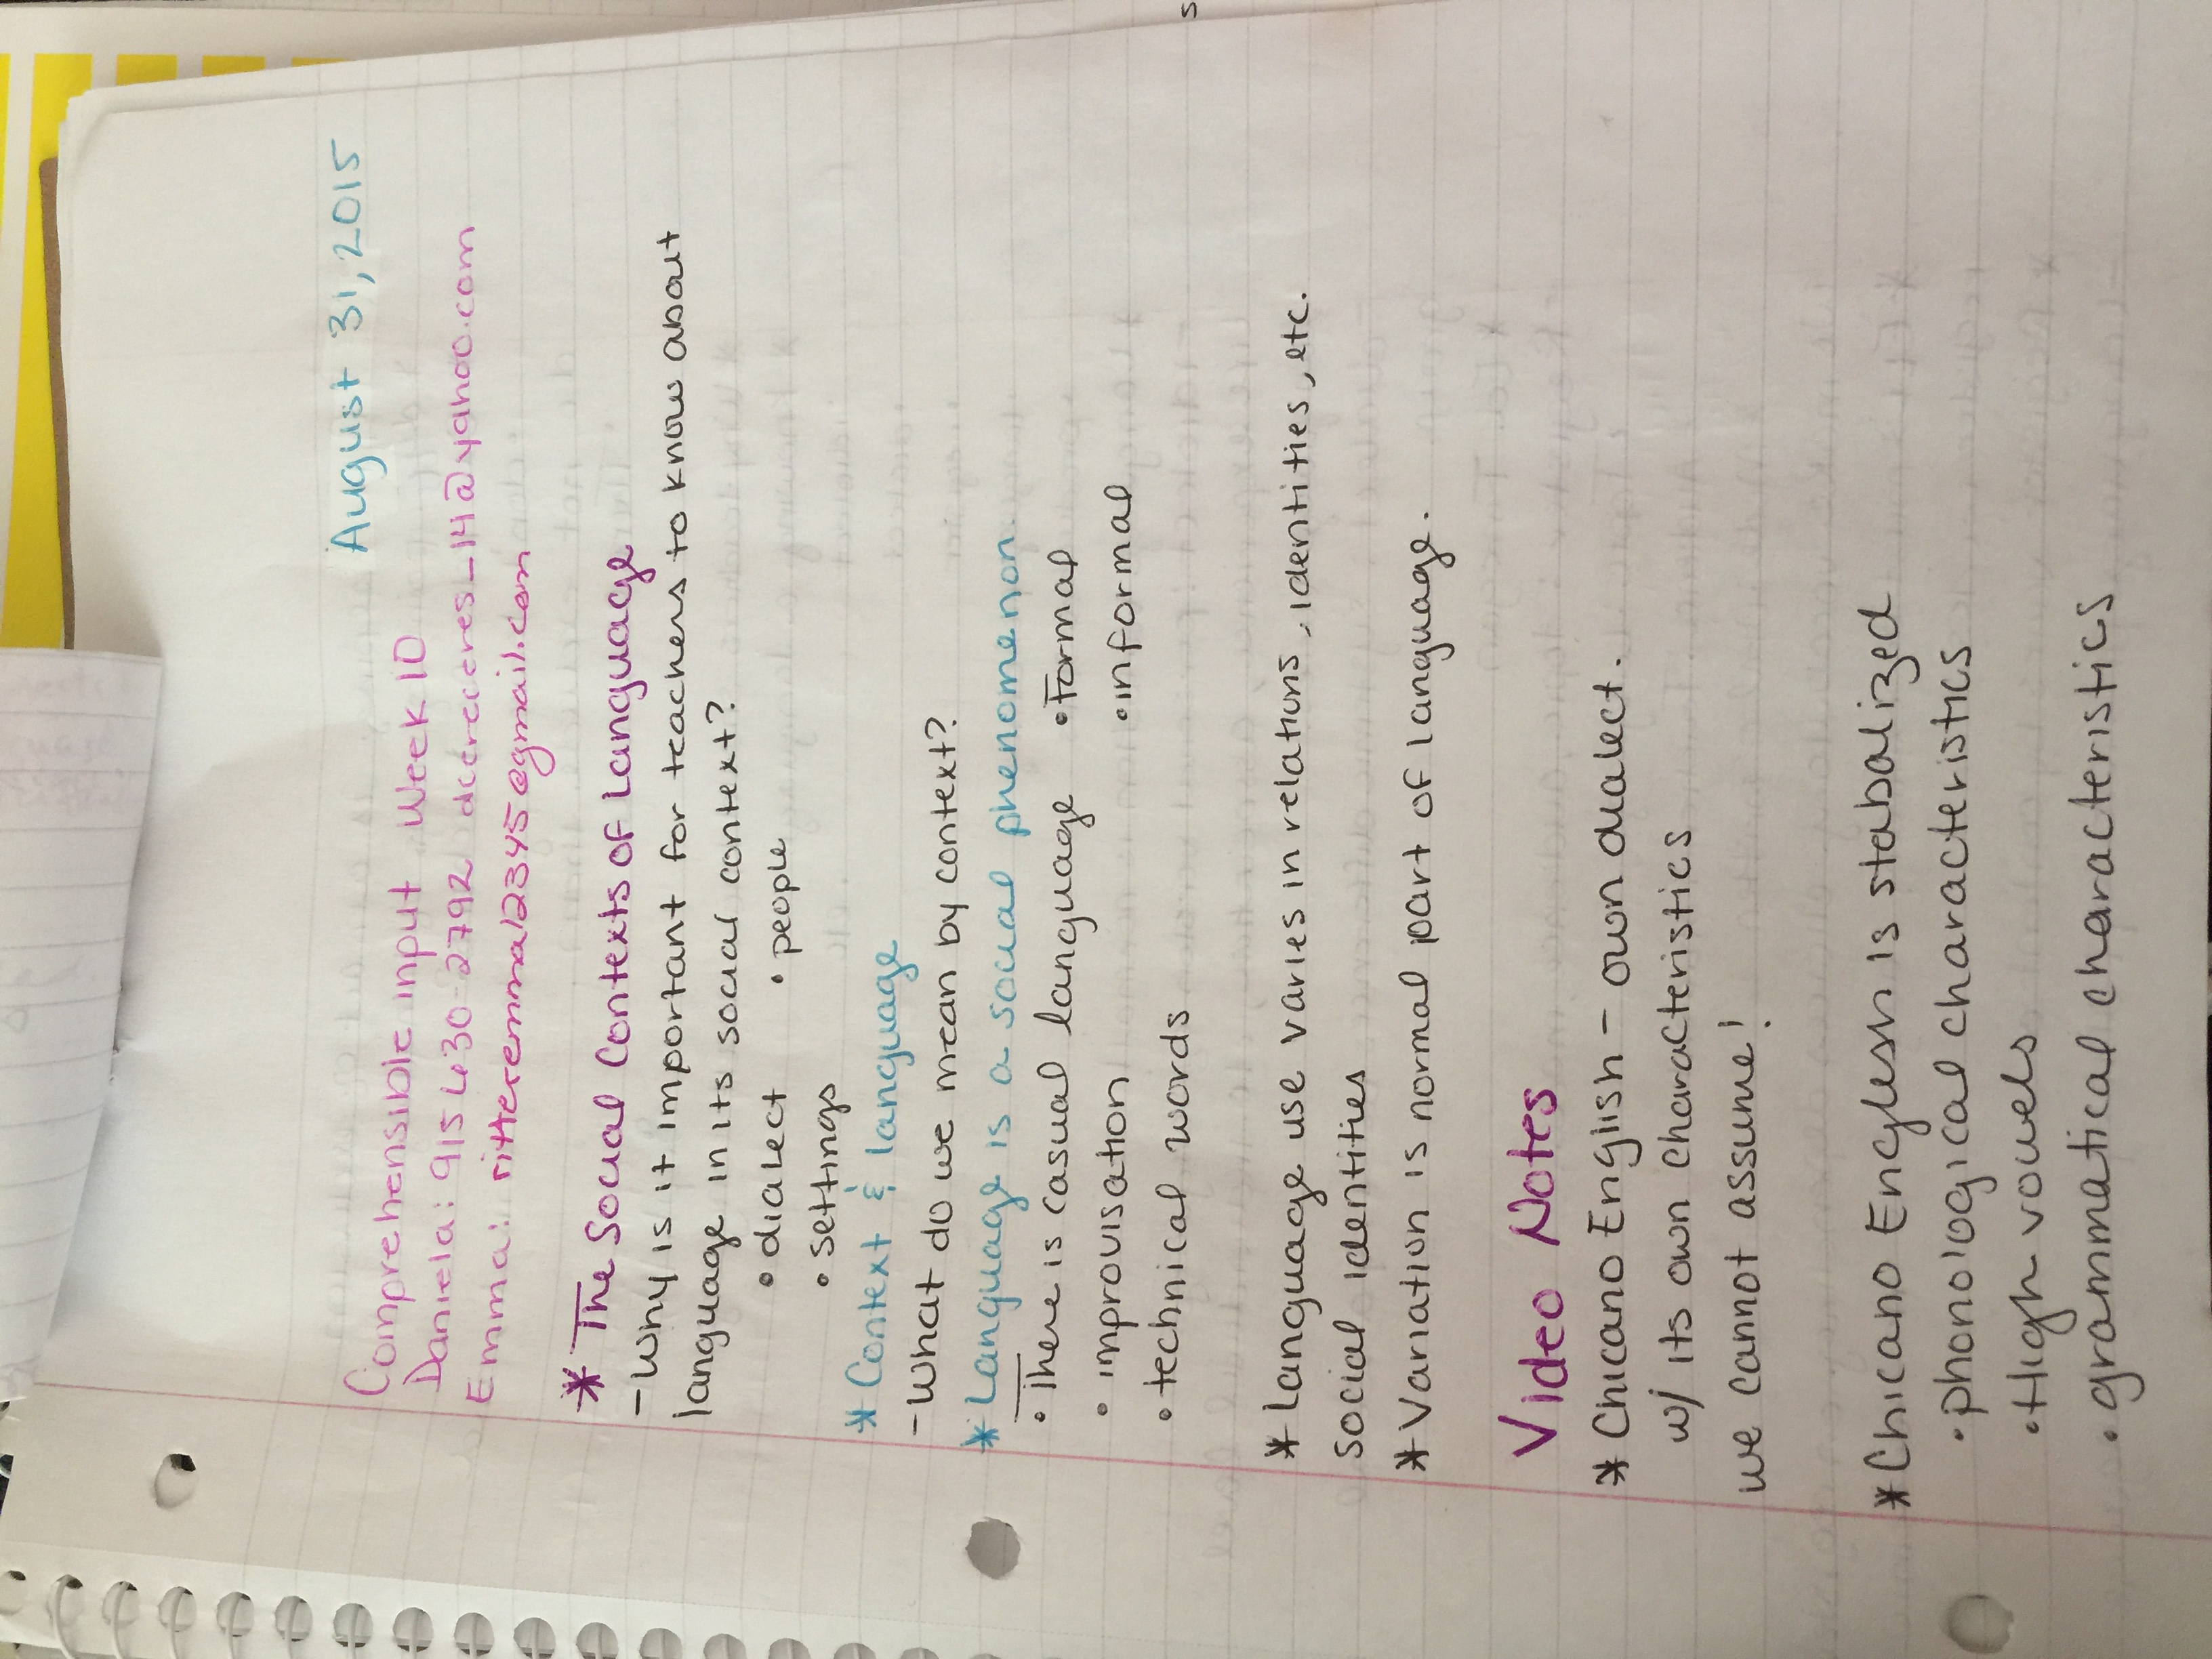 August 31, 2015
Comprehensible input Week 10
Daniela: 915 630-2792 dcereceres_14@yahoo.com
Emma: ritteremma12345@gmail.com
* The Social Contexts of Language
- Why is it important for teachers to know about
language in its social context?
• dialect • people
• settings
* Context & language
- What do we mean by context?
* Language is a social phenomenon
• There is casual language • Formal
• improvisation • informal
• technical words
* Language use varies in relations, identities, etc.
social identities
* Variation is normal part of language.
Video Notes
* Chicano English - own dialect.
w/ its own characteristics
we cannot assume!
* Chicano English is stabalized
• phonological characteristics
• High vowels
• grammatical characteristics